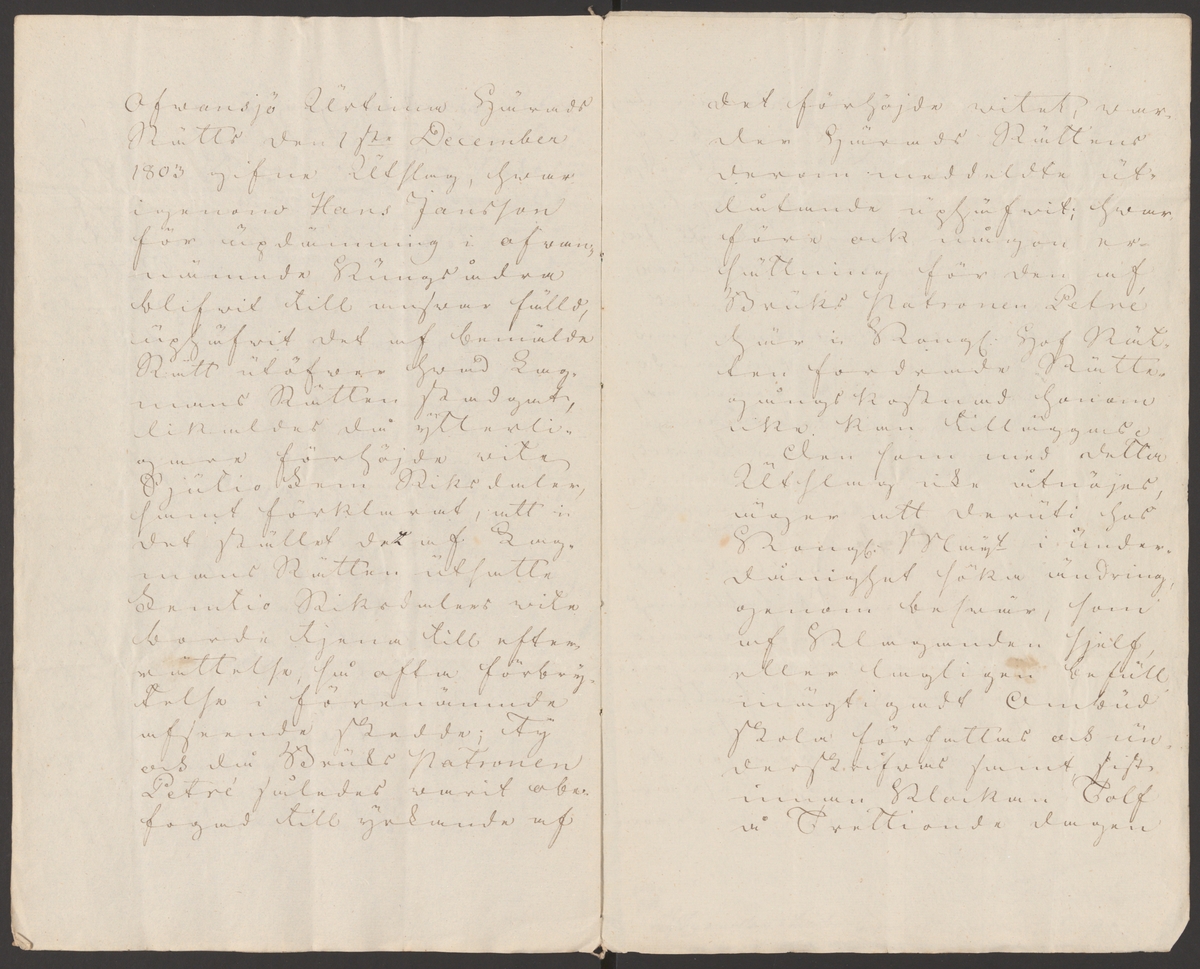 Ofvansjö Urtima Härads
Rätts den 1ste December
1803 gifne Utslag, hvar
igenom Hans Jansson
för updämning i ofvan-
nämnde Kungsådra
blifvit till ansvar fälld,
uphäfvit det af bemälde
Rätt utöfver hvad Lag-
mans Rätten stadgat,
likaledes då ytterli-
gare förhöjde vite
Sjutio Fem Riksdaler,
samt förklarat, att i
det stället det af Lag-
mans Rätten utsatte
Femtio Riksdalers vite
borde tjena till efter-
rättelse, så ofta förbry-
telse i förenämnde
afseende skedde; Ty
och då Bruks Patronen
Petré således varit obe-
fogad till yrkande af
det förhöjde vitet, var-
der Härads Rättens
derom meddeldte ut-
låtande uphäfvit; hvar
före ock någon er-
sättning för den af
Bruks Patronen Petré
här i Kongl. Hof Rät-
ten fordrade Rätte-
gångskostnad honom
icke kan tilläggas.
Den som med detta
Utslag icke åtnöjes,
äger att deruti hos
Kongl. Mayt i under-
dånighet söka ändring,
genom besvär, som
af Klaganden sjelf,
eller lagligen befull
mägtigadt Ombud
skola författas och un-
derskrifvas samt sist
innan Klockan Tolf
å Trettionde dagen